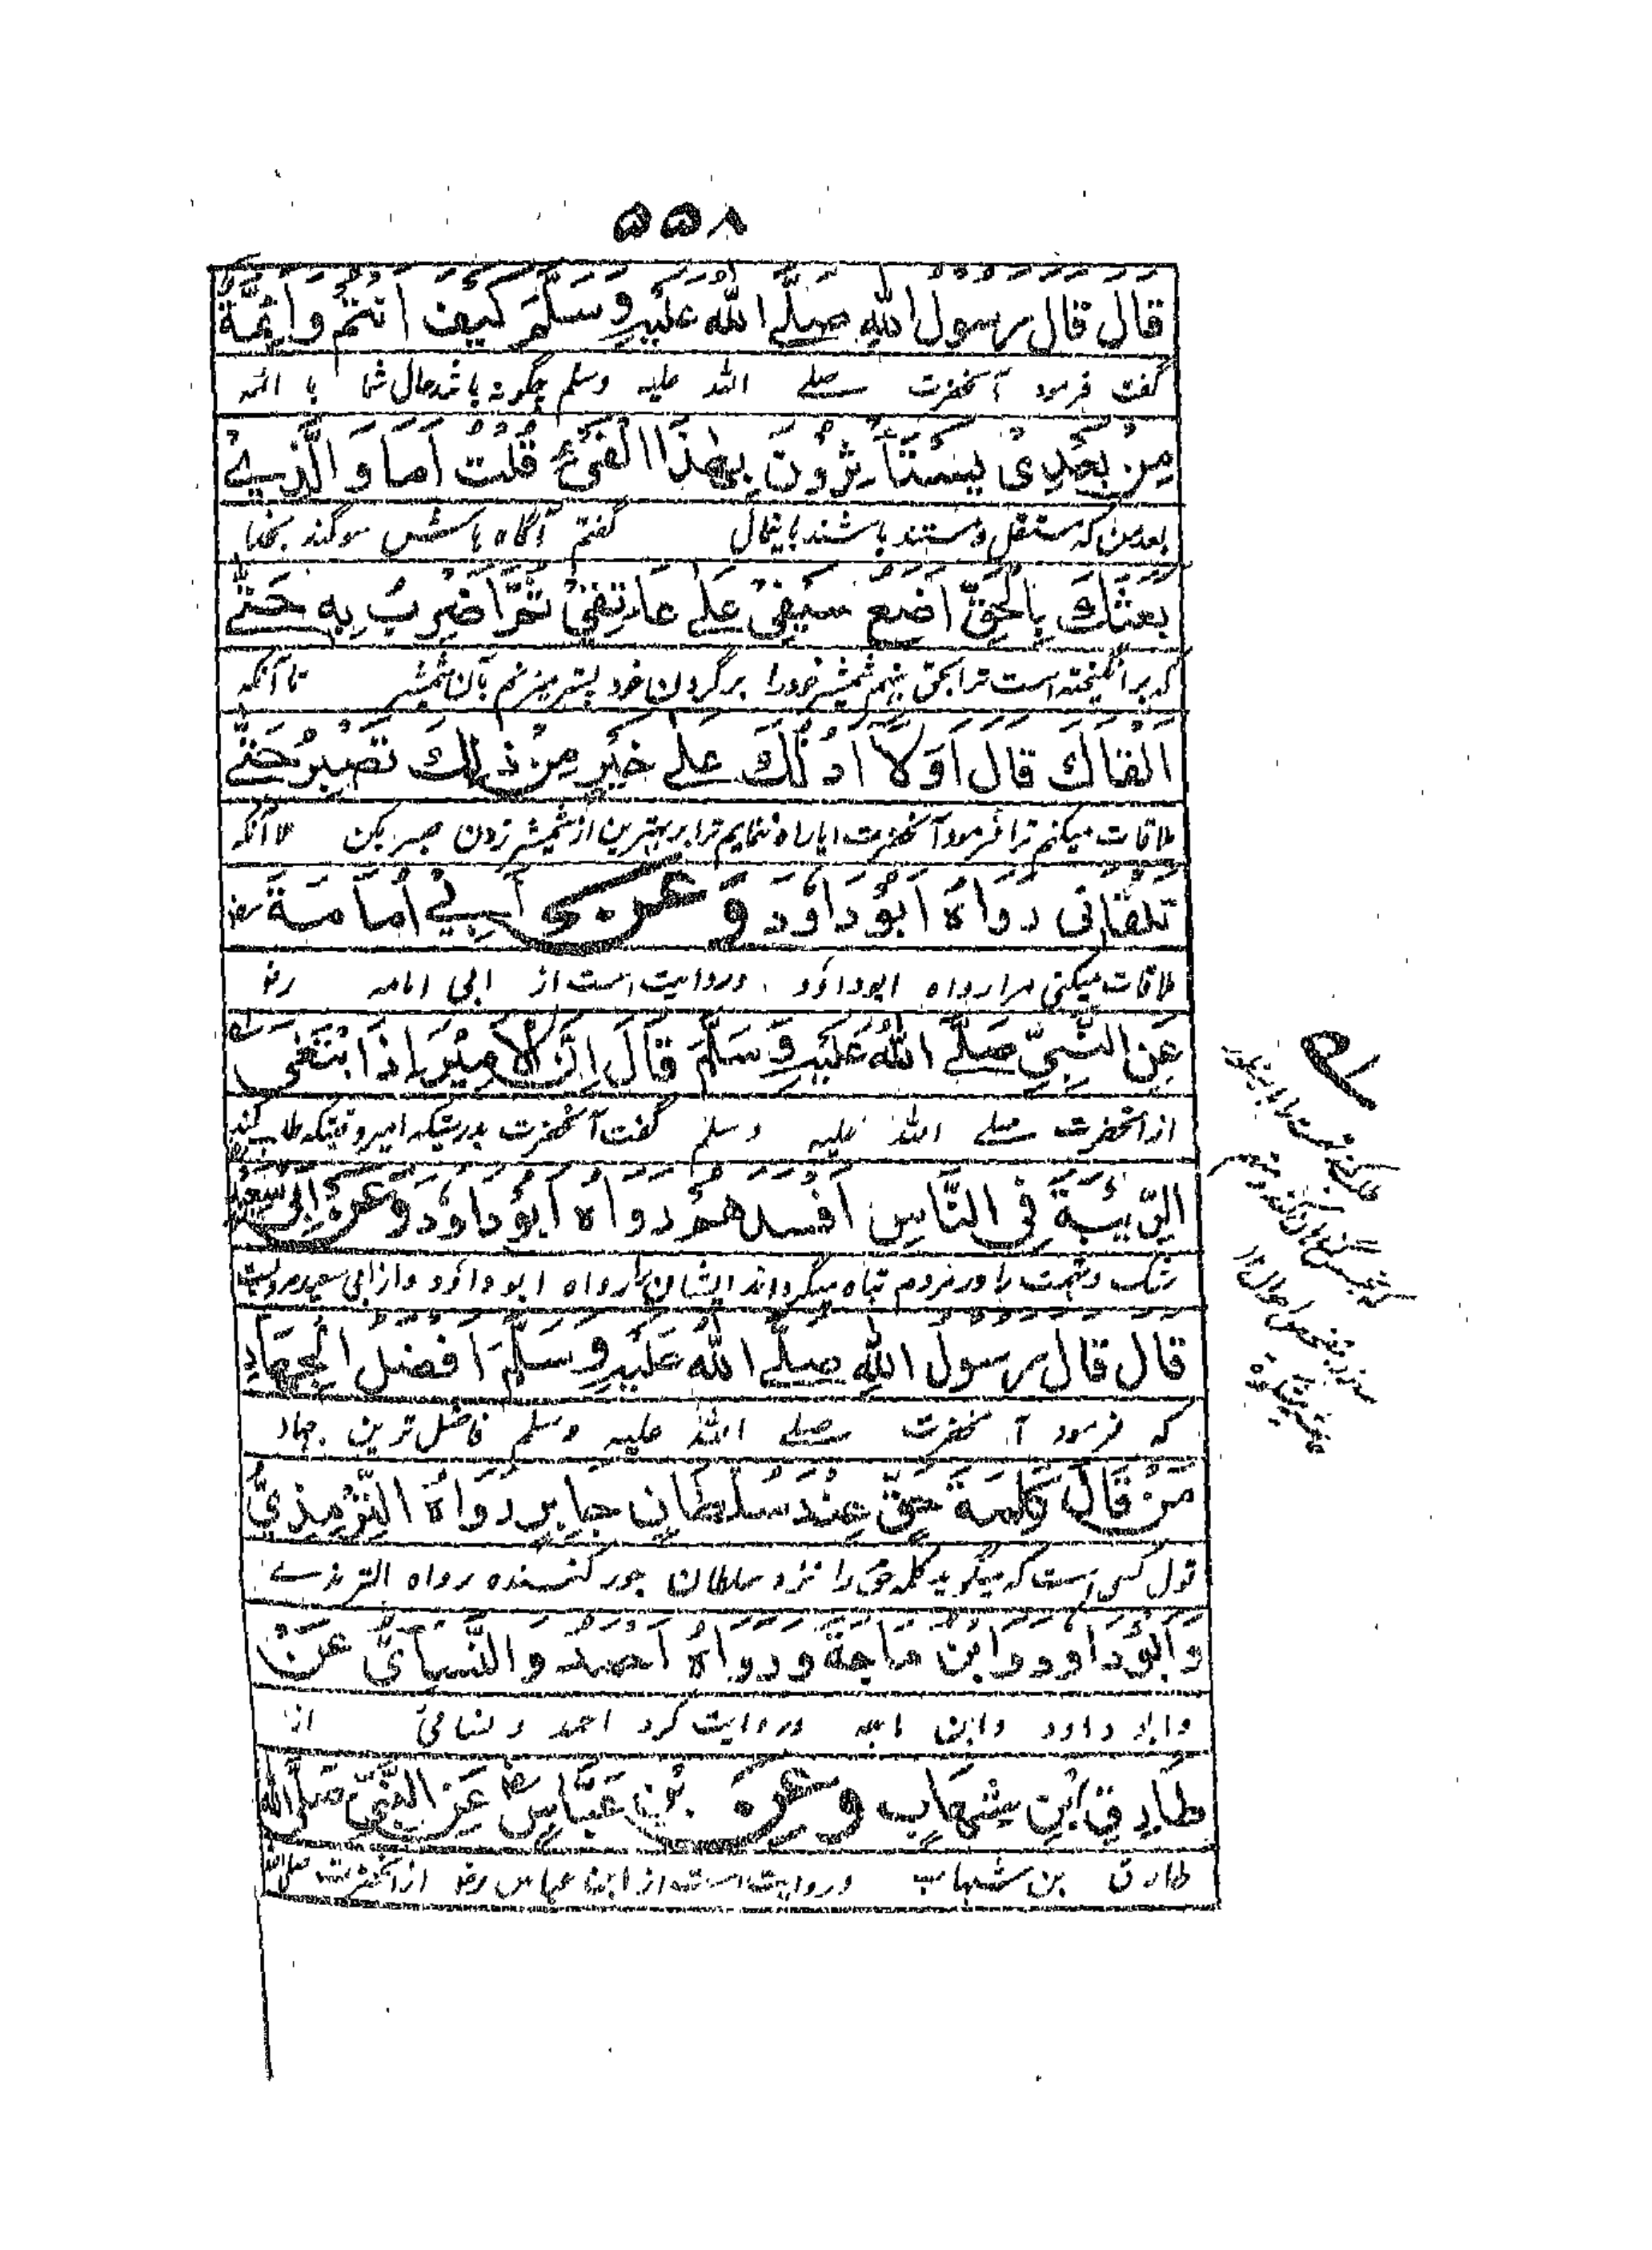 ۵۵۸
قَالَ قَالَ رسول اللهِ صلَّے اللهُ عَلَيْهِ وَسَلَّمَ كَيْفَ اَنْتُمْ وَاَئِمَّةٌ
گفت فرمود آنحضرت صلے اللہ علیہ وسلم چگونہ باشد حال شما با ائمہ
مِنْ بَعْدِىْ يَسْتَأْثِرُوْنَ بِهٰذَا الْفَيْءِ قُلْتُ اَمَا وَالَّذِىْ
بعد من کہ مستقل و مستند باشند باینمال گفتم آگاہ باش سوگند بخدا
بَعَثَكَ بِالْحَقِّ اَضَعُ سَيْفِىْ عَلٰے عَاتِقِىْ ثُمَّ اَضْرِبُ بِهٖ حَتّٰے
کہ برانگیختہ است ترا بحق بنہم شمشیر خود را بر گردن خود پستر میزنم بآن شمشیر تا آنکہ
اَلْقَاكَ قَالَ اَوَلَا اَدُلُّكَ عَلٰے خَيْرٍ مِنْ ذٰلِكَ تَصْبِرُ حَتّٰے
ملاقات میکنم ترا فرمود آنحضرت ایا راہ ننمایم ترا بر بہترین از شمشیر زدن صبر بکن تا آنکہ
تَلْقَانِى رَوَاهُ اَبُوْدَاوُد وَعَنْ اَبِيْ اُمَامَةَ رض
ملاقات میکنی مرا رواہ ابوداؤد . وروایت است از ابی امامہ رض
عَنِ النَّبِىِّ صَلَّے اللهُ عَلَيْهِ وَسَلَّمَ قَالَ اِنَّ الْاَمِيْرَ اِذَا ابْتَغَى
از آنحضرت صلے اللہ علیہ وسلم گفت آنحضرت بدرستیکہ امیر وقتیکہ طلب کند
الرِّيْبَةَ فِى النَّاسِ اَفْسَدَهُمْ رَوَاهُ اَبُوْدَاوُد وَعَنْ اَبِىْ سَعِيْدٍ
شک و تہمت را در مردم تباہ میگرداند ایشان را رواہ ابو داؤد و از ابی سعید مرویست
قَالَ قَالَ رسول اللهِ صلَّے اللهُ عَلَيْهِ وَسَلَّمَ اَفْضَلُ الْجِهَادِ
کہ فرمود آنحضرت صلے اللہ علیہ وسلم فاضل ترین جہاد
مَنْ قَالَ كَلِمَةَ حَقٍّ عِنْدَ سُلْطَانٍ جَايِرٍ رَوَاهُ التِّرْمِذِىُّ
قول کسی است کہ میگوید کلمہ حق را نزد سلطان جور کنندہ رواہ الترمذے
وَاَبُوْدَاوُد وَابْنُ مَاجَةَ وَرَوَاهُ اَحْمَدُ وَالنَّسَائِىُّ عَنْ
وابو داود وابن ماجہ وروایت کرد احمد و نسائی از
طَارِقِ ابْنِ شِهَابٍ وَعَنِ بْنِ عَبَّاسٍ رض عَنِ النَّبِىِّ صَلَّى اللهُ
طارق بن شہاب وروایت است از ابن عباس رض از آنحضرت صلی اللہ